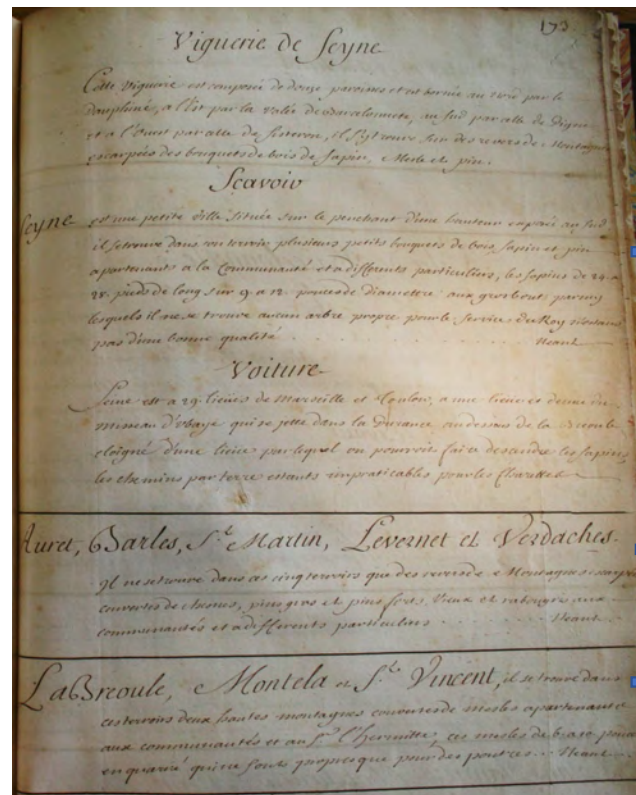 173
Viguerie de Seyne
Cette Viguerie est composée de douze paroisses et est bornée au nord par le
dauphiné, a l'Est par la valée de Barcelonnete, au sud par celle de Digne
et a l'Ouest par celle de Sisteron, il s'y trouve sur des revers de Montagnes
escarpées des bouquets de bois de sapin, Mesle et pin.
Sçavoir
Seyne est une petite Ville située sur le penchant d'une hauteur exposé au sud
il se trouve dans son terroir plusieurs petits bouquets de bois sapin et pin
apartenants a la Communauté et a differents particuliers, les sapins de 24 a
28 pieds de long sur 9 a 12 pouces de diametre aux gros bouts parmy
lesquels il ne se trouve aucun arbre propre pour le service du Roy n'estant
pas d'une bonne qualité . . . . . . . . . . Neant
Voiture
Seine est a 29 lieües de Marseille et Toulon, a une lieüe et demie du
ruisseau d'Ubaye qui se jette dans la Durance au dessous de la Breoule
eloigné d'une lieüe par lequel on pourroit faire descendre les sapins
les chemins par terre estants impraticables pour les Charettes
Auret, Barles, St. Martin, Levernet et Verdaches.
Il ne se trouve dans ces cinq terroirs que des revers de Montagnes escarpés
couvertes de chesnes, pins gros et pins forts, Vieux et rabougris aux
communautés et a differents particuliers . . . . . . Neant
La Breoule, Montela et St. Vincent, il se trouve dans
ces terroirs deux hautes montagnes couvertes de mesles apartenants
aux communautés et au Sr. l'hermitte, ces mesles de 6 a 10 pouces
en quarré qui ne sont propres que pour des poutres . . Neant